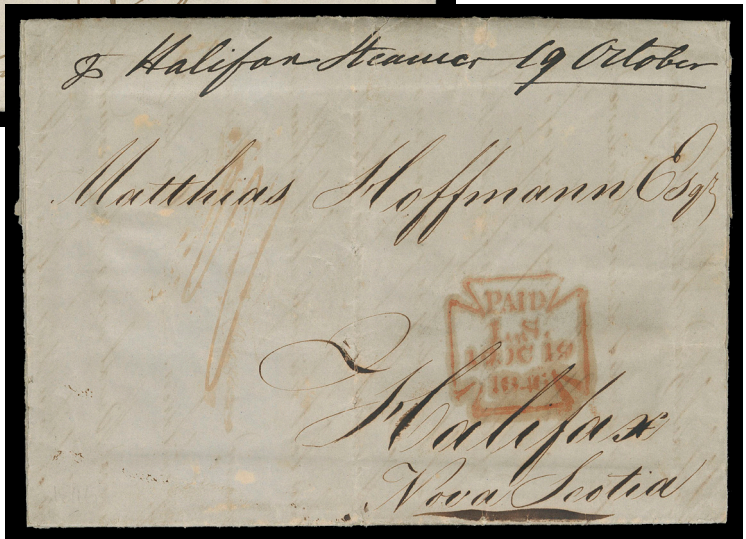 ⅌ Halifax Steamer 19 October
Matthias Hoffmann Esqr
PAID
L.S.
OC 19
Halifax
Nova Scotia